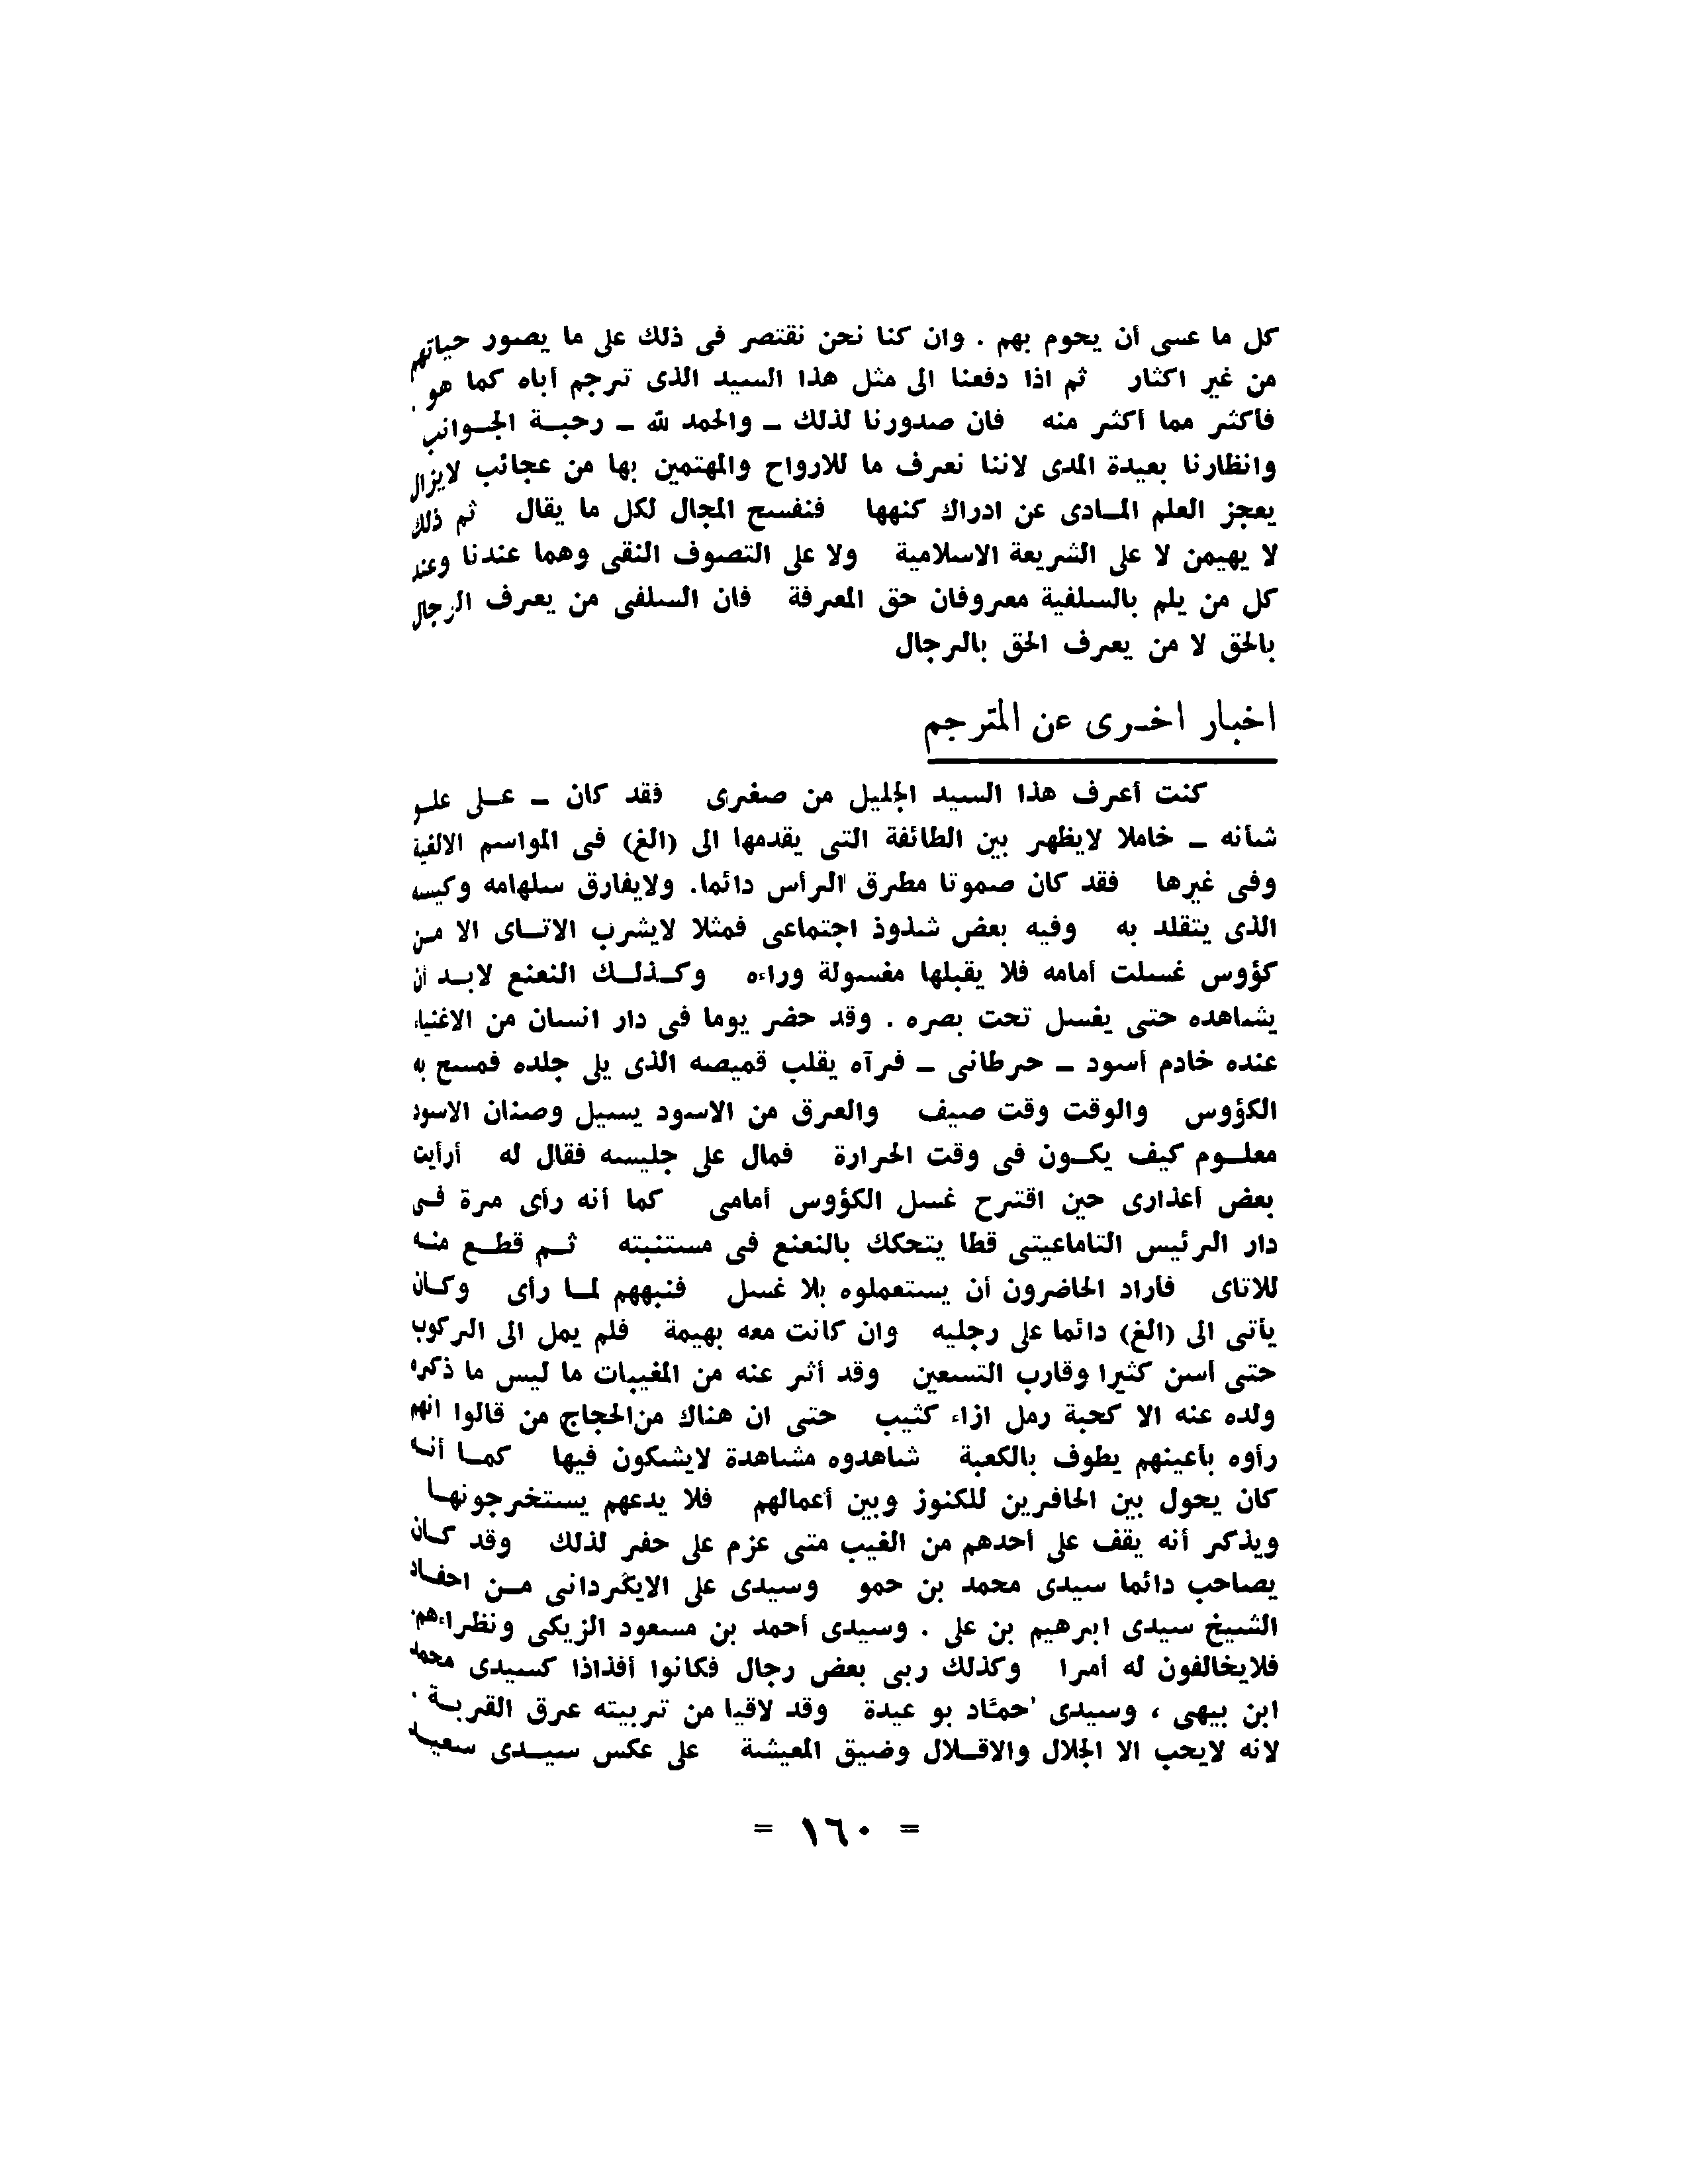 كل ما عسى أن يحوم بهم . وان كنا نحن نقتصر فى ذلك على ما يصور حياتهم
من غير اكثار ثم اذا دفعنا الى مثل هذا السيد الذى ترجم أباه كما هو .
فأكثر مما أكثر منه فان صدورنا لذلك ــ والحمد لله ــ رحبــة الجــوانب
وانظارنا بعيدة المدى لاننا نعرف ما للارواح والمهتمين بها من عجائب لايزال
يعجز العلم المــادى عن ادراك كنهها فنفسح المجال لكل ما يقال ثم ذلك
لا يهيمن لا على الشريعة الاسلامية ولا على التصوف النقى وهما عندنا وعند
كل من يلم بالسلفية معروفان حق المعرفة فان السلفى من يعرف الرجال
بالحق لا من يعرف الحق بالرجال
اخبار اخـرى عن المترجم
كنت أعرف هذا السيد الجليل من صغرى فقد كان ــ عــلى علــو
شأنه ــ خاملا لايظهر بين الطائفة التى يقدمها الى (الغ) فى المواسم الالغية
وفى غيرها فقد كان صموتا مطرق الرأس دائما. ولايفارق سلهامه وكيسه
الذى يتقلد به وفيه بعض شذوذ اجتماعى فمثلا لايشرب الاتــاى الا مـن
كؤوس غسلت أمامه فلا يقبلها مغسولة وراءه وكــذلــك النعنع لابــد أن
يشاهده حتى يغسل تحت بصره . وقد حضر يوما فى دار انسان من الاغنياء
عنده خادم أسود ــ حرطانى ــ فرآه يقلب قميصه الذى يلى جلده فمسح به
الكؤوس والوقت وقت صيف والعرق من الاسود يسيل وصنان الاسود
معلــوم كيف يكــون فى وقت الحرارة فمال على جليسه فقال له أرأيت
بعض أعذارى حين اقترح غسل الكؤوس أمامى كما أنه رأى مرة فـى
دار الرئيس التاماعيتى قطا يتحكك بالنعنع فى مستنبته ثــم قطــع منـه
للاتاى فأراد الحاضرون أن يستعملوه بلا غسل فنبههم لمــا رأى وكــان
يأتى الى (الغ) دائما على رجليه وان كانت معه بهيمة فلم يمل الى الركوب
حتى أسن كثيرا وقارب التسعين وقد أثر عنه من المغيبات ما ليس ما ذكره
ولده عنه الا كحبة رمل ازاء كثيب حتى ان هناك من الحجاج من قالوا انهم
رأوه بأعينهم يطوف بالكعبة شاهدوه مشاهدة لايشكون فيها كمــا أنـه
كان يحول بين الحافرين للكنوز وبين أعمالهم فلا يدعهم يستخرجونهــا
ويذكر أنه يقف على أحدهم من الغيب متى عزم على حفر لذلك وقد كــان
يصاحب دائما سيدى محمد بن حمو وسيدى على الايڭردانى مــن احفــاد
الشيخ سيدى ابرهيم بن على . وسيدى أحمد بن مسعود الزيكى ونظراءهم.
فلايخالفون له أمرا وكذلك ربى بعض رجال فكانوا أفذاذا كسيدى محمد
ابن بيهى ، وسيدى حمّاد بو عيدة وقد لاقيا من تربيته عرق القربــة .
لانه لايحب الا الجلال والاقــلال وضيق المعيشة على عكس سيــدى سعيــد
= ١٦٠ =